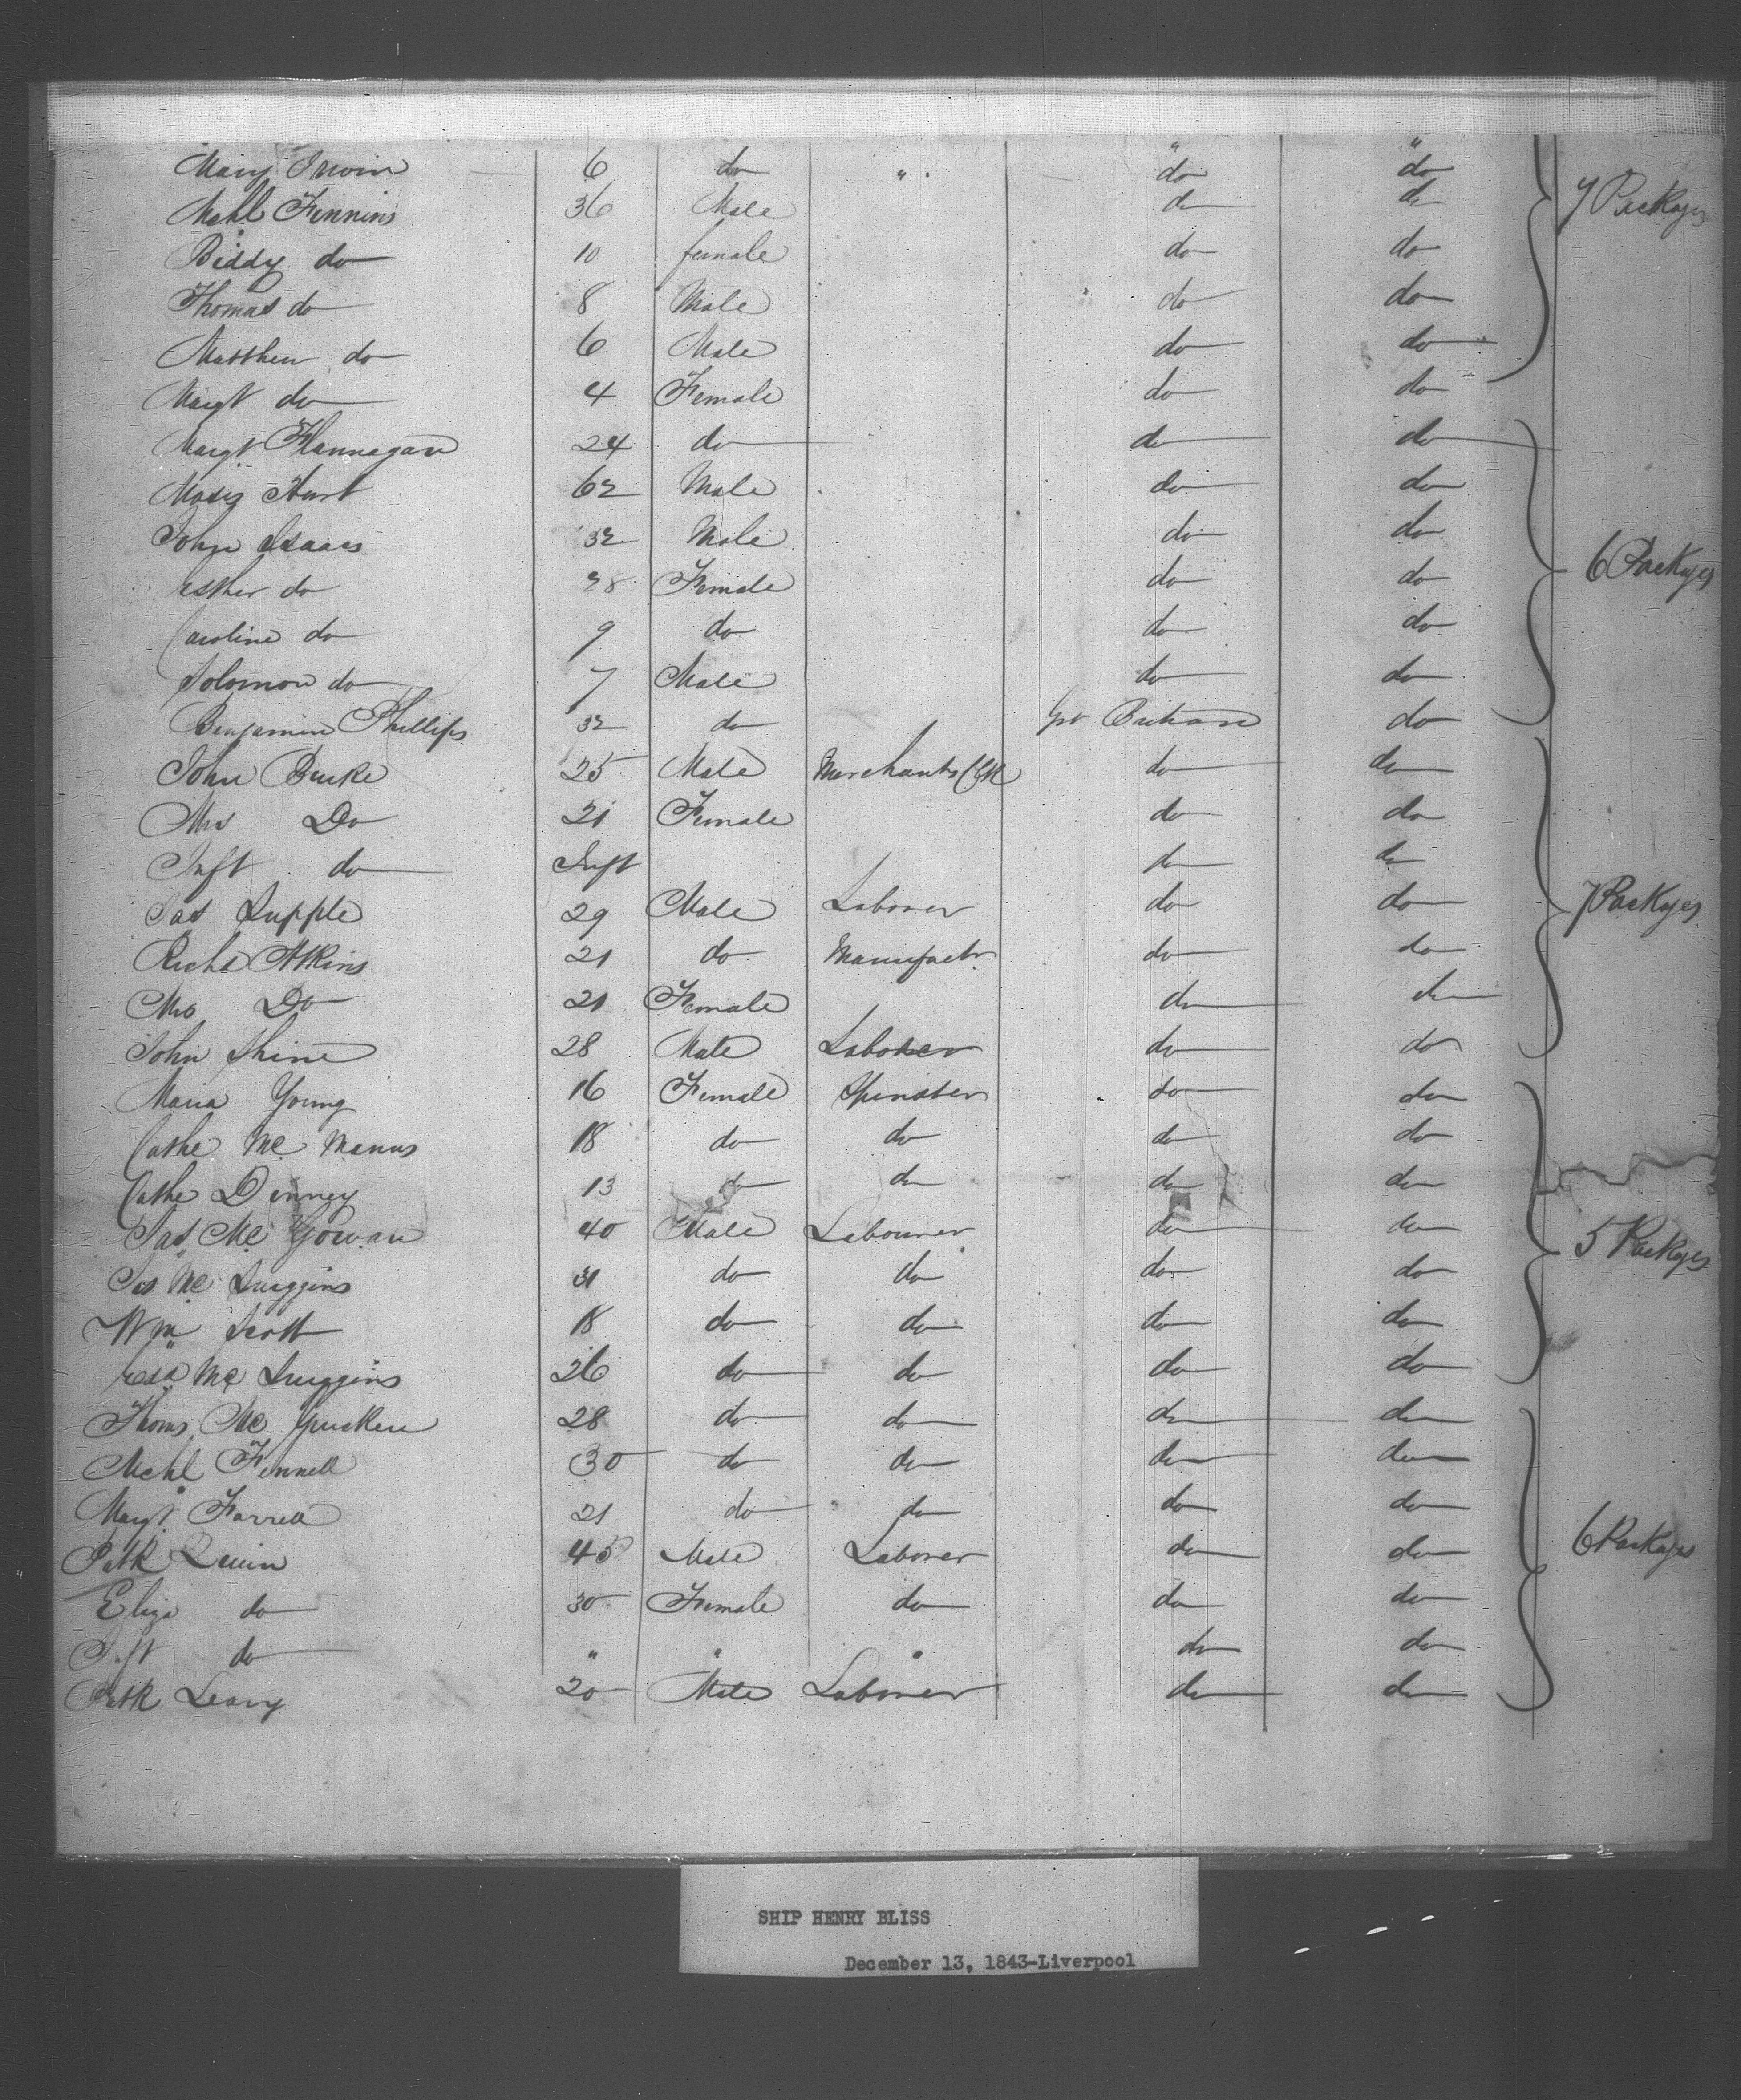 " "
Mary Irwin 6 do " do do
Mchl Finnins 36 Male do do 7 Packages
Biddy do 10 female do do
Thomas do 8 Male do do
Matthew do 6 Male do do
Margt do 4 Female do do
Margt Flannagan 24 do do do
Moses Hart 62 Male do do
John Isaacs 32 Male do do
Esther do 28 Female do do 6 Packages
Caroline do 9 do do do
Solomon do 7 Male do do
Benjamin Phillips 32 do Gr Britain do
John Burke 25 Male Merchants Clk do do
Mrs Do 21 Female do do
Inft do Inft do do
Jas Supple 29 Male Laborer do do 7 Packages
Richd Atkins 21 do Manufactr do do
Mrs Do 21 Female do do
John Shine 28 Male Laborer do do
Maria Young 16 Female Spinster do do
Cathe Mc Manus 18 do do do do
Cathe Denney 13 do do do do
Jas Mc Gowan 40 Male Labourer do do 5 Packages
Jas Mc Luggins 31 do do do do
Wm Scott 18 do do do do
Mc Luggins 26 do do do do
Thoms Mc Gucken 28 do do do do
Mchl Fennell 30 do do do do
Margt Farrell 21 do do do do
Patk Quin 45 Male Laborer do do 6 Packages
Eliza do 30 Female do do do
Inft do " " " do do
Patk Leary 20 Male Laborer do do
SHIP HENRY BLISS
December 13, 1843-Liverpool